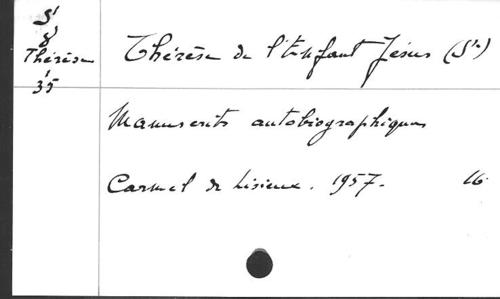 S
8
Thérèse
35
Thérèse de l'Enfant Jésus (Ste)
Manuscrits autobiographiques
Carmel de Lisieux. 1957. 16